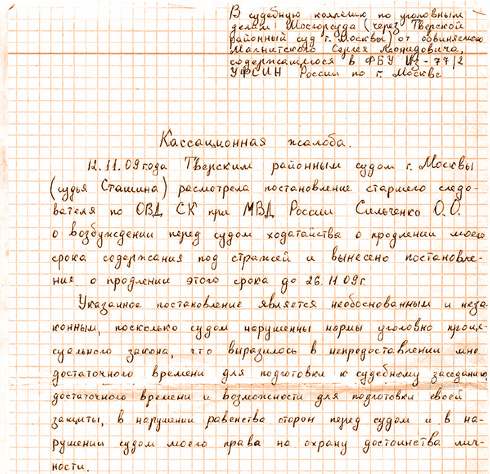 В судебную коллегию по уголовным
делам Мосгорсуда (через Тверской
районный суд г. Москвы) от обвиняемого
Магнитского Сергея Леонидовича,
содержащегося в ФБУ ИЗ-77/2
УФСИН России по г. Москве
Кассационная жалоба.
12.11.09 года Тверским районным судом г. Москвы
(судья Сташина) расмотрела постановление старшего следо-
вателя по ОВД СК при МВД России Сильченко О.О.
о возбуждении перед судом ходатайства о продлении моего
срока содержания под стражей и вынесено постановле-
ние о продлении этого срока до 26.11.09г.
Указанное постановление является необоснованным и неза-
конным, поскольку судом нарушенны нормы уголовно процес-
суального закона, что выразилось в непредоставлении мне
достаточного времени для подготовки к судебному заседанию,
достаточного времени и возможности для подготовки своей
защиты, в нарушении равенства сторон перед судом и в на-
рушении судом моего права на охрану достоинства лич-
ности.